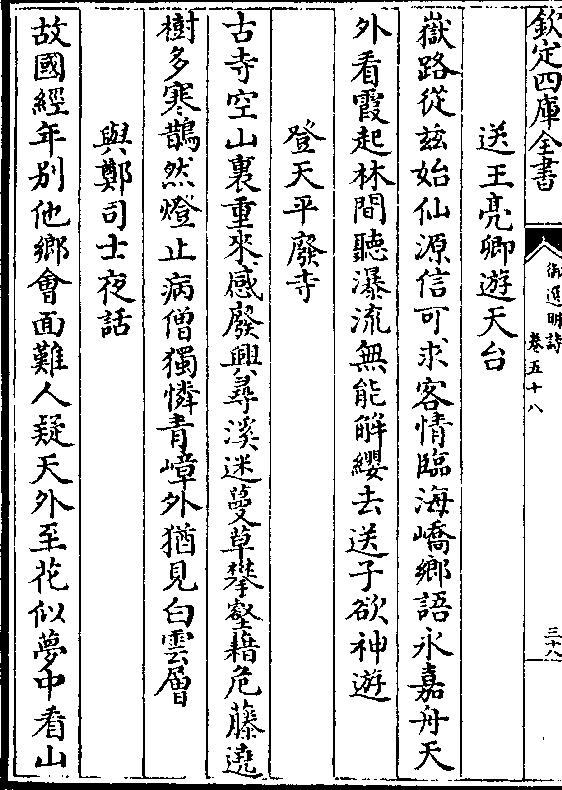 欽定四庫全書
御選明詩
卷五十八
三十八
送王亮卿遊天台
嶽路從兹始仙源信可求客情臨海嶠鄉語永嘉舟天
外看霞起林間聽瀑流無能解纓去送子欲神遊
登天平廢寺
古寺空山裏重來感廢興尋溪迷蔓草攀壑藉危藤遶
樹多寒鵲然燈止病僧獨憐青嶂外猶見白雲層
與鄭司士夜話
故國經年别他鄉會面難人疑天外至花似夢中看山